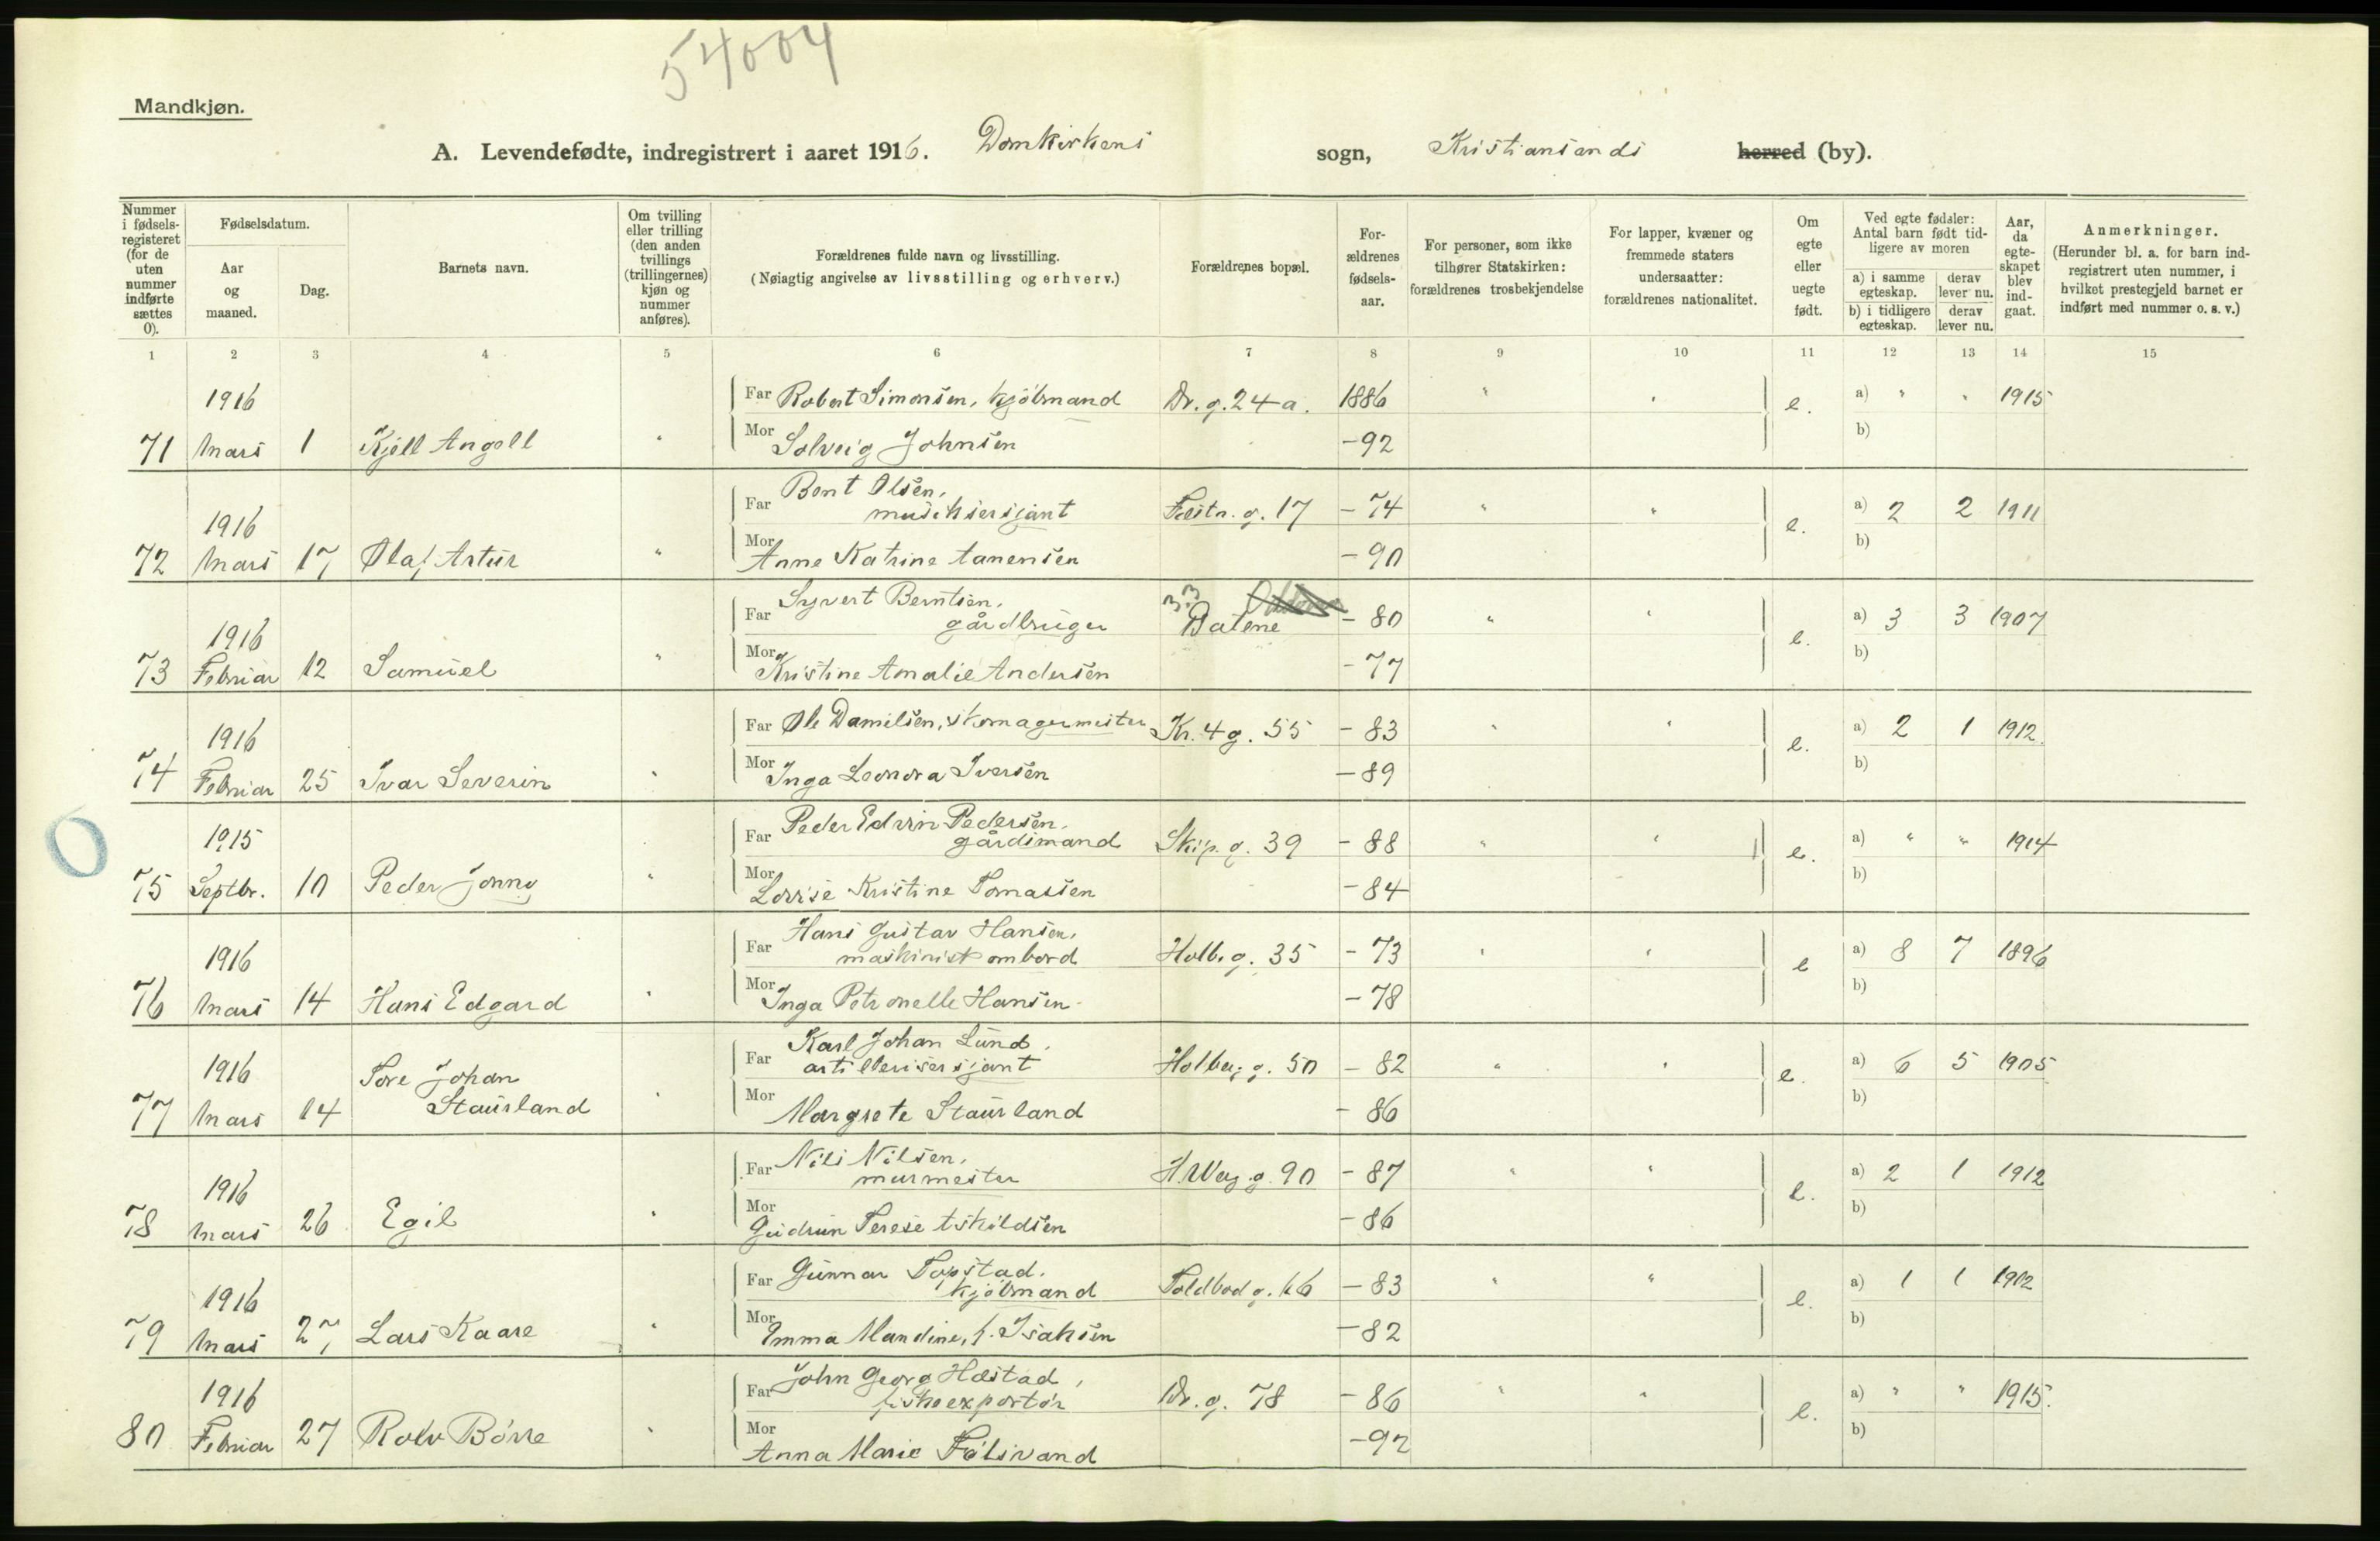 54004
Mandkjøn.
A. Levendefødte, indregistrert i aaret 1916. Domkirkens sogn, Kristiansands herred (by).
Nummer i fødsels-registeret (for de uten nummer indførte sættes 0).
Fødselsdatum.
Aar og maaned.
Dag.
Barnets navn.
Om tvilling eller trilling (den anden tvillings (trillingernes) kjøn og nummer anføres).
Forældrenes fulde navn og livsstilling.
(Nøiagtig angivelse av livsstilling og erhverv.)
Forældrenes bopæl.
For-ældrenes fødsels-aar.
For personer, som ikke tilhører Statskirken: forældrenes trosbekjendelse
For lapper, kvæner og fremmede staters undersaatter: forældrenes nationalitet.
Om egte eller uegte født.
Ved egte fødsler: Antal barn født tid-ligere av moren
a) i samme egteskap. derav lever nu.
b) i tidligere egteskap. derav lever nu.
Aar, da egte-skapet blev ind-gaat.
Anmerkninger.
(Herunder bl. a. for barn ind-registrert uten nummer, i hvilket prestegjeld barnet er indført med nummer o. s. v.)
1 2 3 4 5 6 7 8 9 10 11 12 13 14 15
1916 Far Robert Simonsen, kjøbmand Dr. g. 24 a. 1886 " " e. a) " " 1915
71 Mars 1 Kjell Angell " Mor Solveig Johnsen -92 b)
Far Bent Olsen,
1916 musiksersjant Festn. g. 17 - 74 " " e. a) 2 2 1911
72 Mars 17 Olaf Artur " Mor Anne Katrine Aanensen - 90 b)
Far Syvert Berntsen, 33
1916 gårdbruger Dalene - 80 " " e. a) 3 3 1907
73 Februar 12 Samuel " Mor Kristine Amalie Andersen - 77 b)
1916 Far Ole Danielsen, skomagermester Kr. 4 g. 55 - 83 " " e. a) 2 1 1912
74 Februar 25 Ivar Severin " Mor Inga Leonora Iversen - 89 b)
0
Far Peder Edvin Pedersen,
1915 gårdsmand Skip. g. 39 - 88 " " e. a) " " 1914
75 Septbr. 10 Peder Jonny " Mor Lovise Kristine Tomassen - 84 b)
Far Hans Gustav Hansen,
1916 maskinist ombord Holb. g. 35 - 73 " " e a) 8 7 1896
76 Mars 14 Hans Edgard " Mor Inga Petronelle Hansen - 78 b)
Far Karl Johan Lund,
1916 Tore Johan artillerisersjant Holberg g. 50 - 82 " " e. a) 6 5 1905
77 Mars 14 Staurland " Mor Margrete Staurland - 86 b)
Far Nils Nilsen,
1916 murmester H. Werg. g. 90 - 87 " " e. a) 2 1 1912
78 Mars 26 Egil " Mor Gudrun Terese Eskildsen - 86 b)
Far Gunnar Topstad,
1916 kjøbmand Toldbod g. 66 - 83 " " e. a) 1 1 1912
79 Mars 27 Lars Kaare " Mor Emma Mandine, f. Isaksen - 82 b)
Far John Georg Hæstad,
1916 fiskeexportør Dr. g. 78 - 86 " " e. a) " " 1915.
80 Februar 27 Rolv Börre " Mor Anna Marie -92 b)